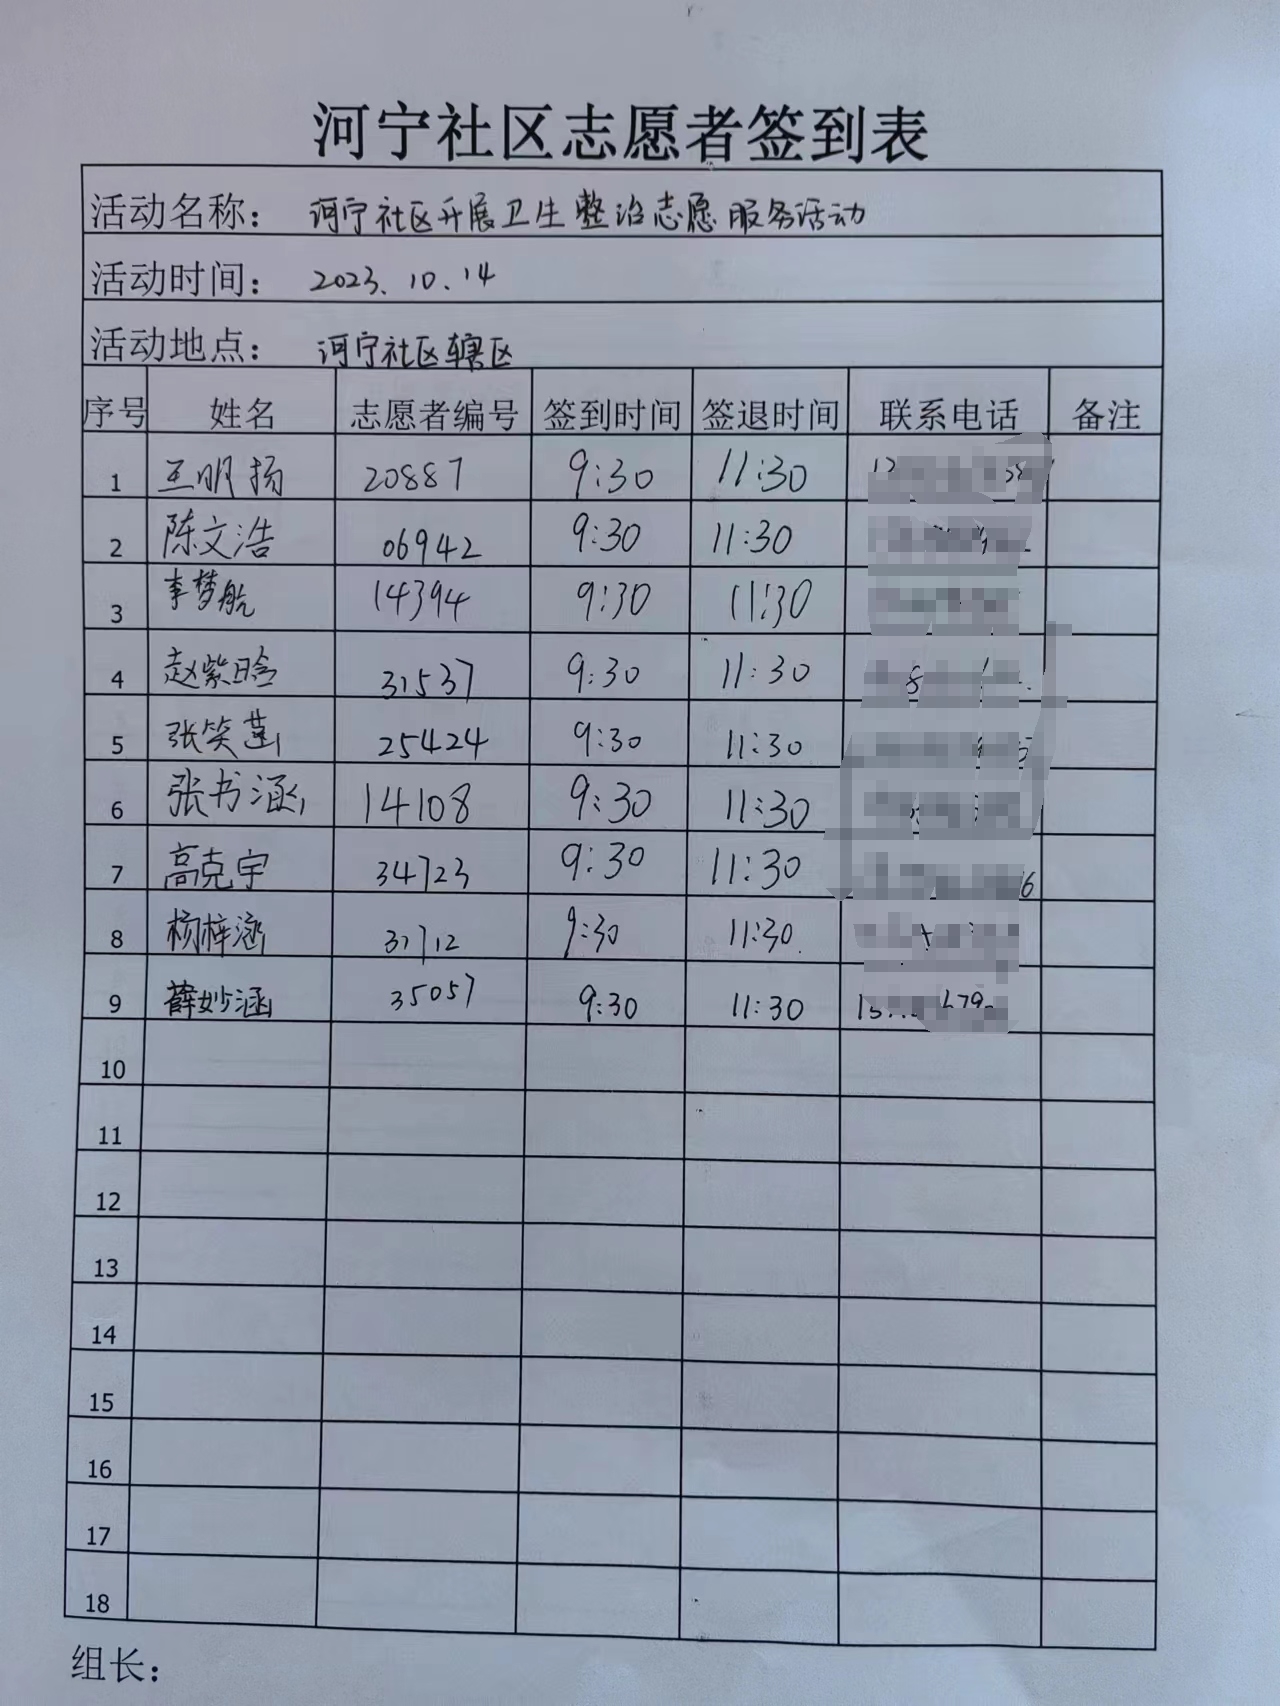 河宁社区志愿者签到表
活动名称： 河宁社区开展卫生整治志愿服务活动
活动时间： 2023.10.14
活动地点： 河宁社区辖区
序号 姓名 志愿者编号 签到时间 签退时间 联系电话 备注
1 王明扬 20887 9:30 11:30
2 陈文浩 06942 9:30 11:30
3 李梦航 14394 9:30 11:30
4 赵紫晗 31537 9:30 11:30
5 张笑菡 25424 9:30 11:30
6 张书涵 14108 9:30 11:30
7 高克宇 34723 9:30 11:30
8 杨梓涵 31712 9:30 11:30
9 薛妙涵 35057 9:30 11:30
10
11
12
13
14
15
16
17
18
组长：